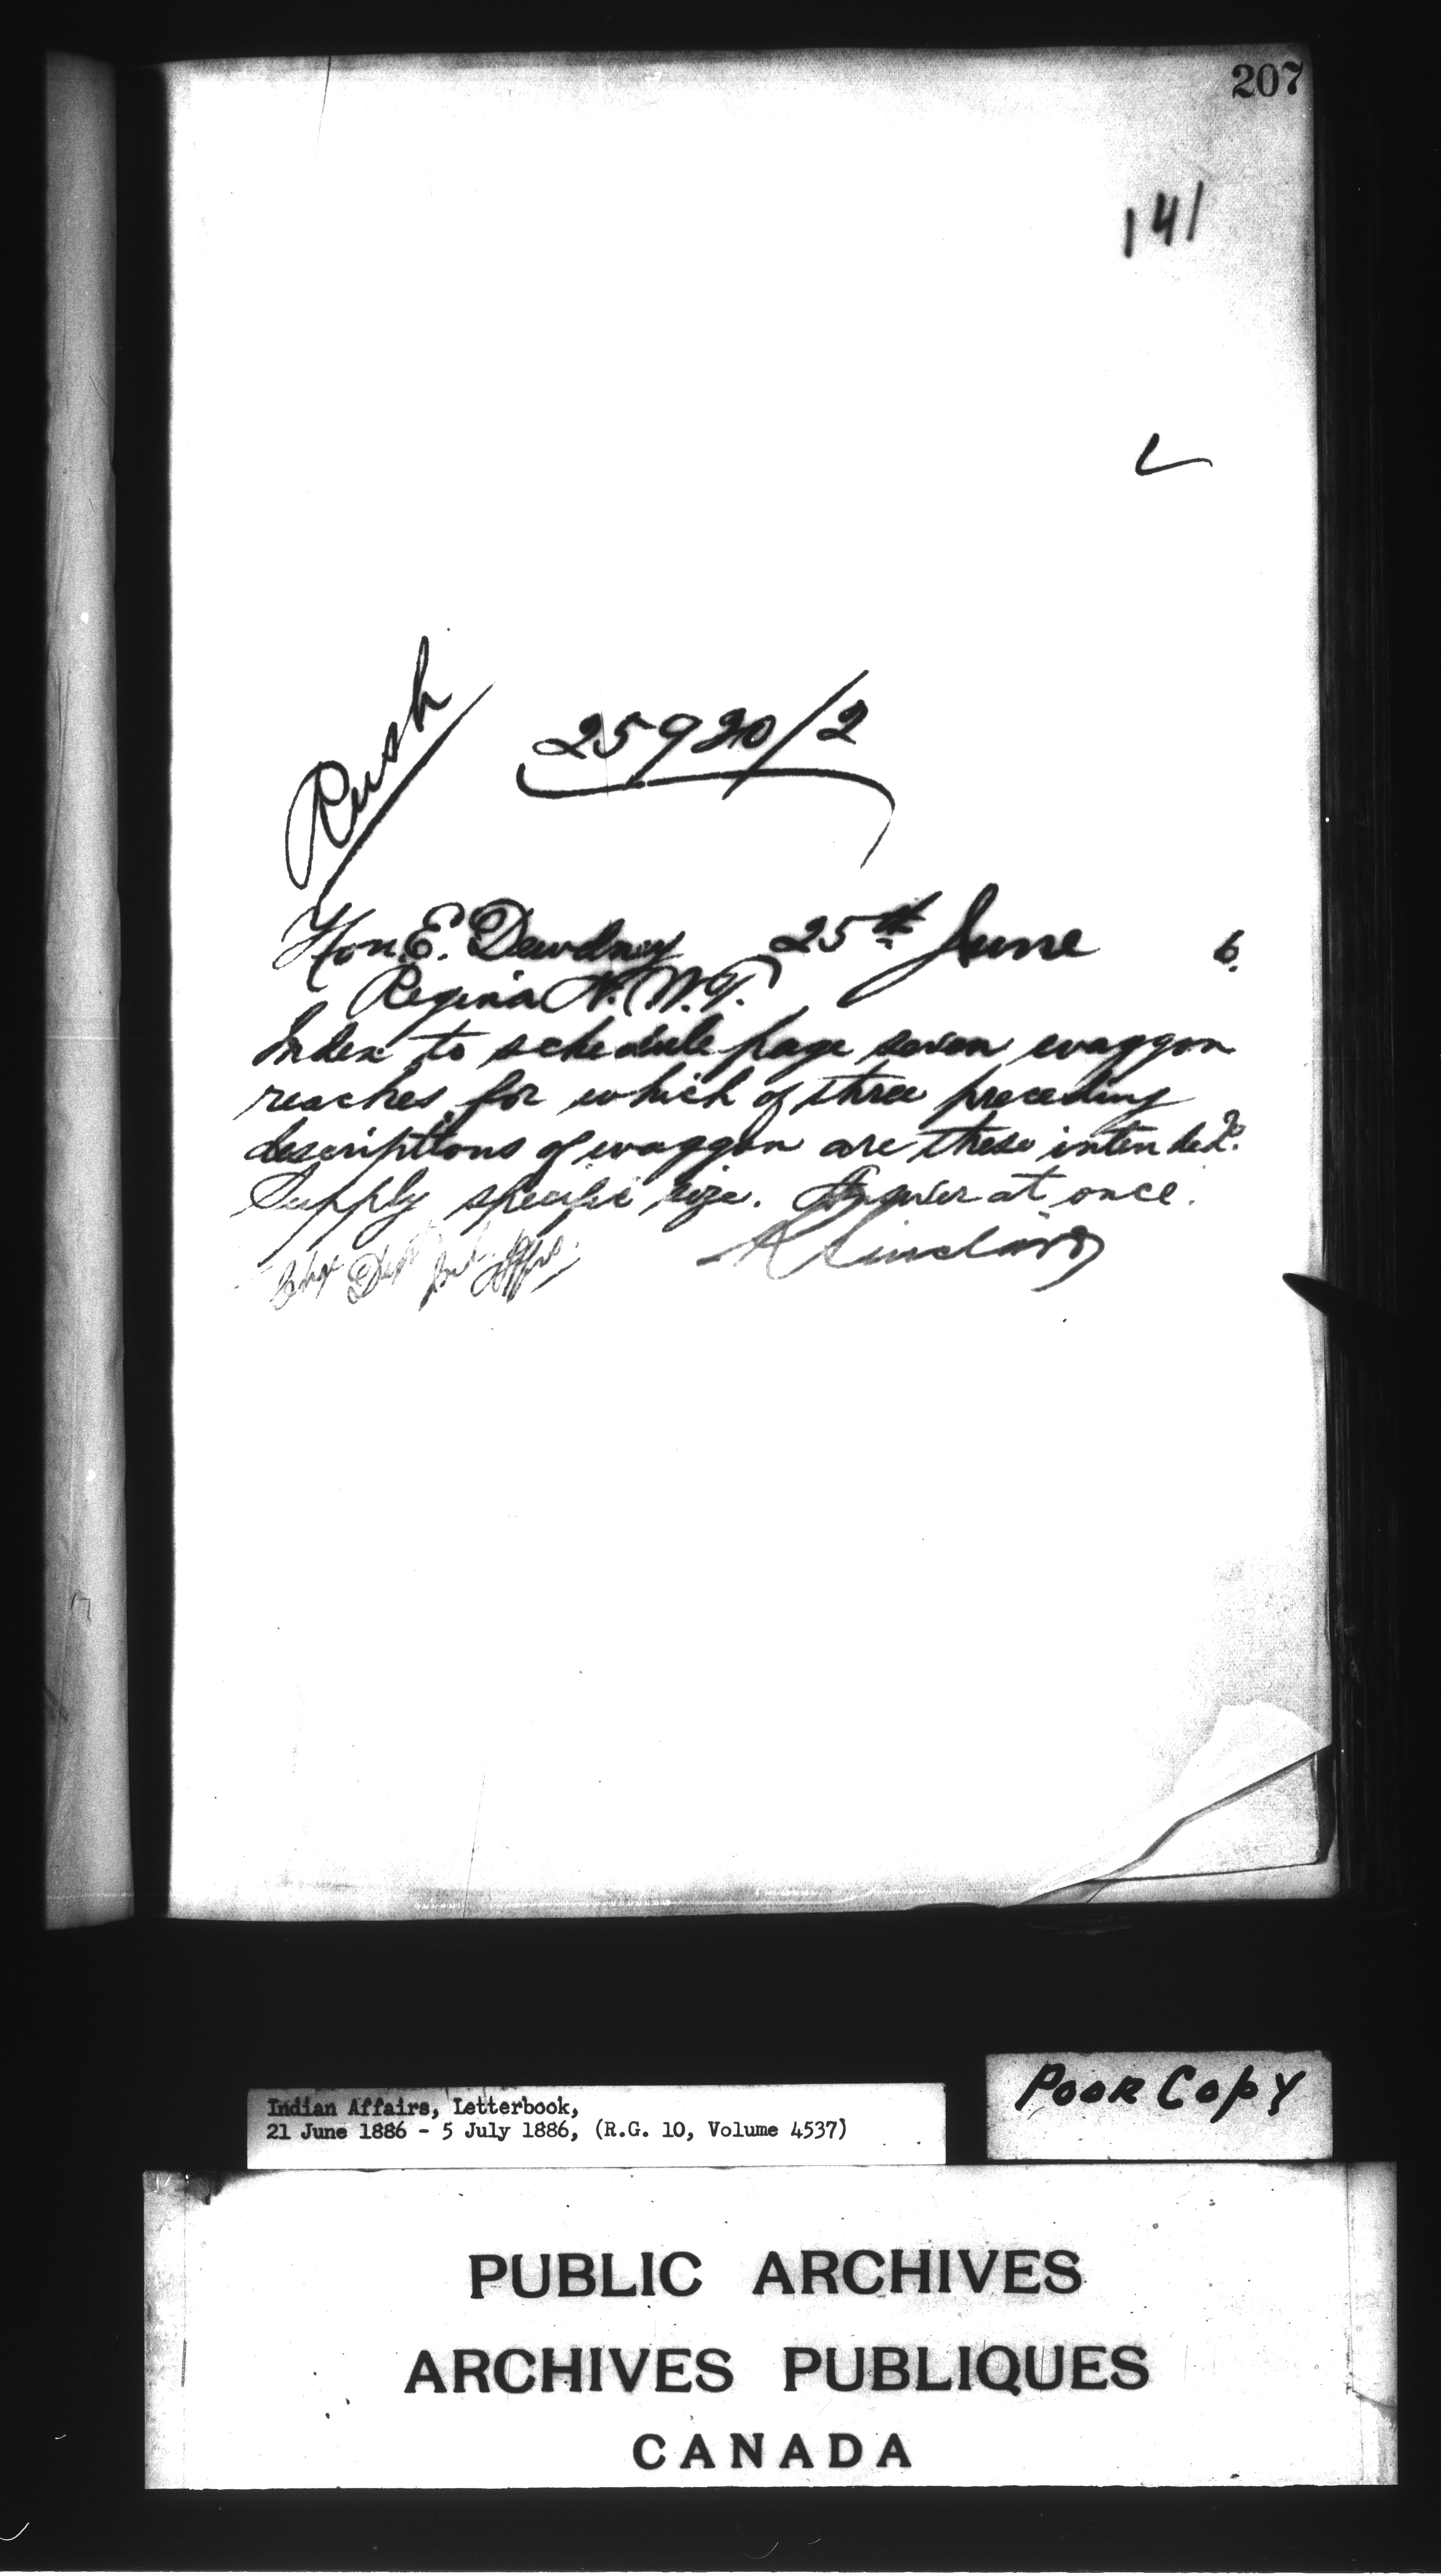 207
141
Rush
25920/2
Hon. E. Dewdney 25th June 6.
Regina N.W.T.
Index to schedule page seven waggon
reaches for which of three preceding
descriptions of waggon are these intended?
Supply specific size. Answer at once.
Chge Dept Ind. Affrs. A Sinclair
Poor Copy
Indian Affairs, Letterbook,
21 June 1886 - 5 July 1886, (R.G. 10, Volume 4537)
PUBLIC ARCHIVES
ARCHIVES PUBLIQUES
CANADA